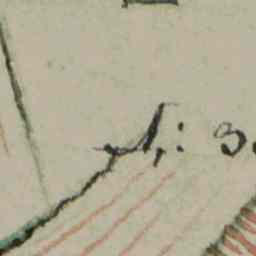 A: 3.